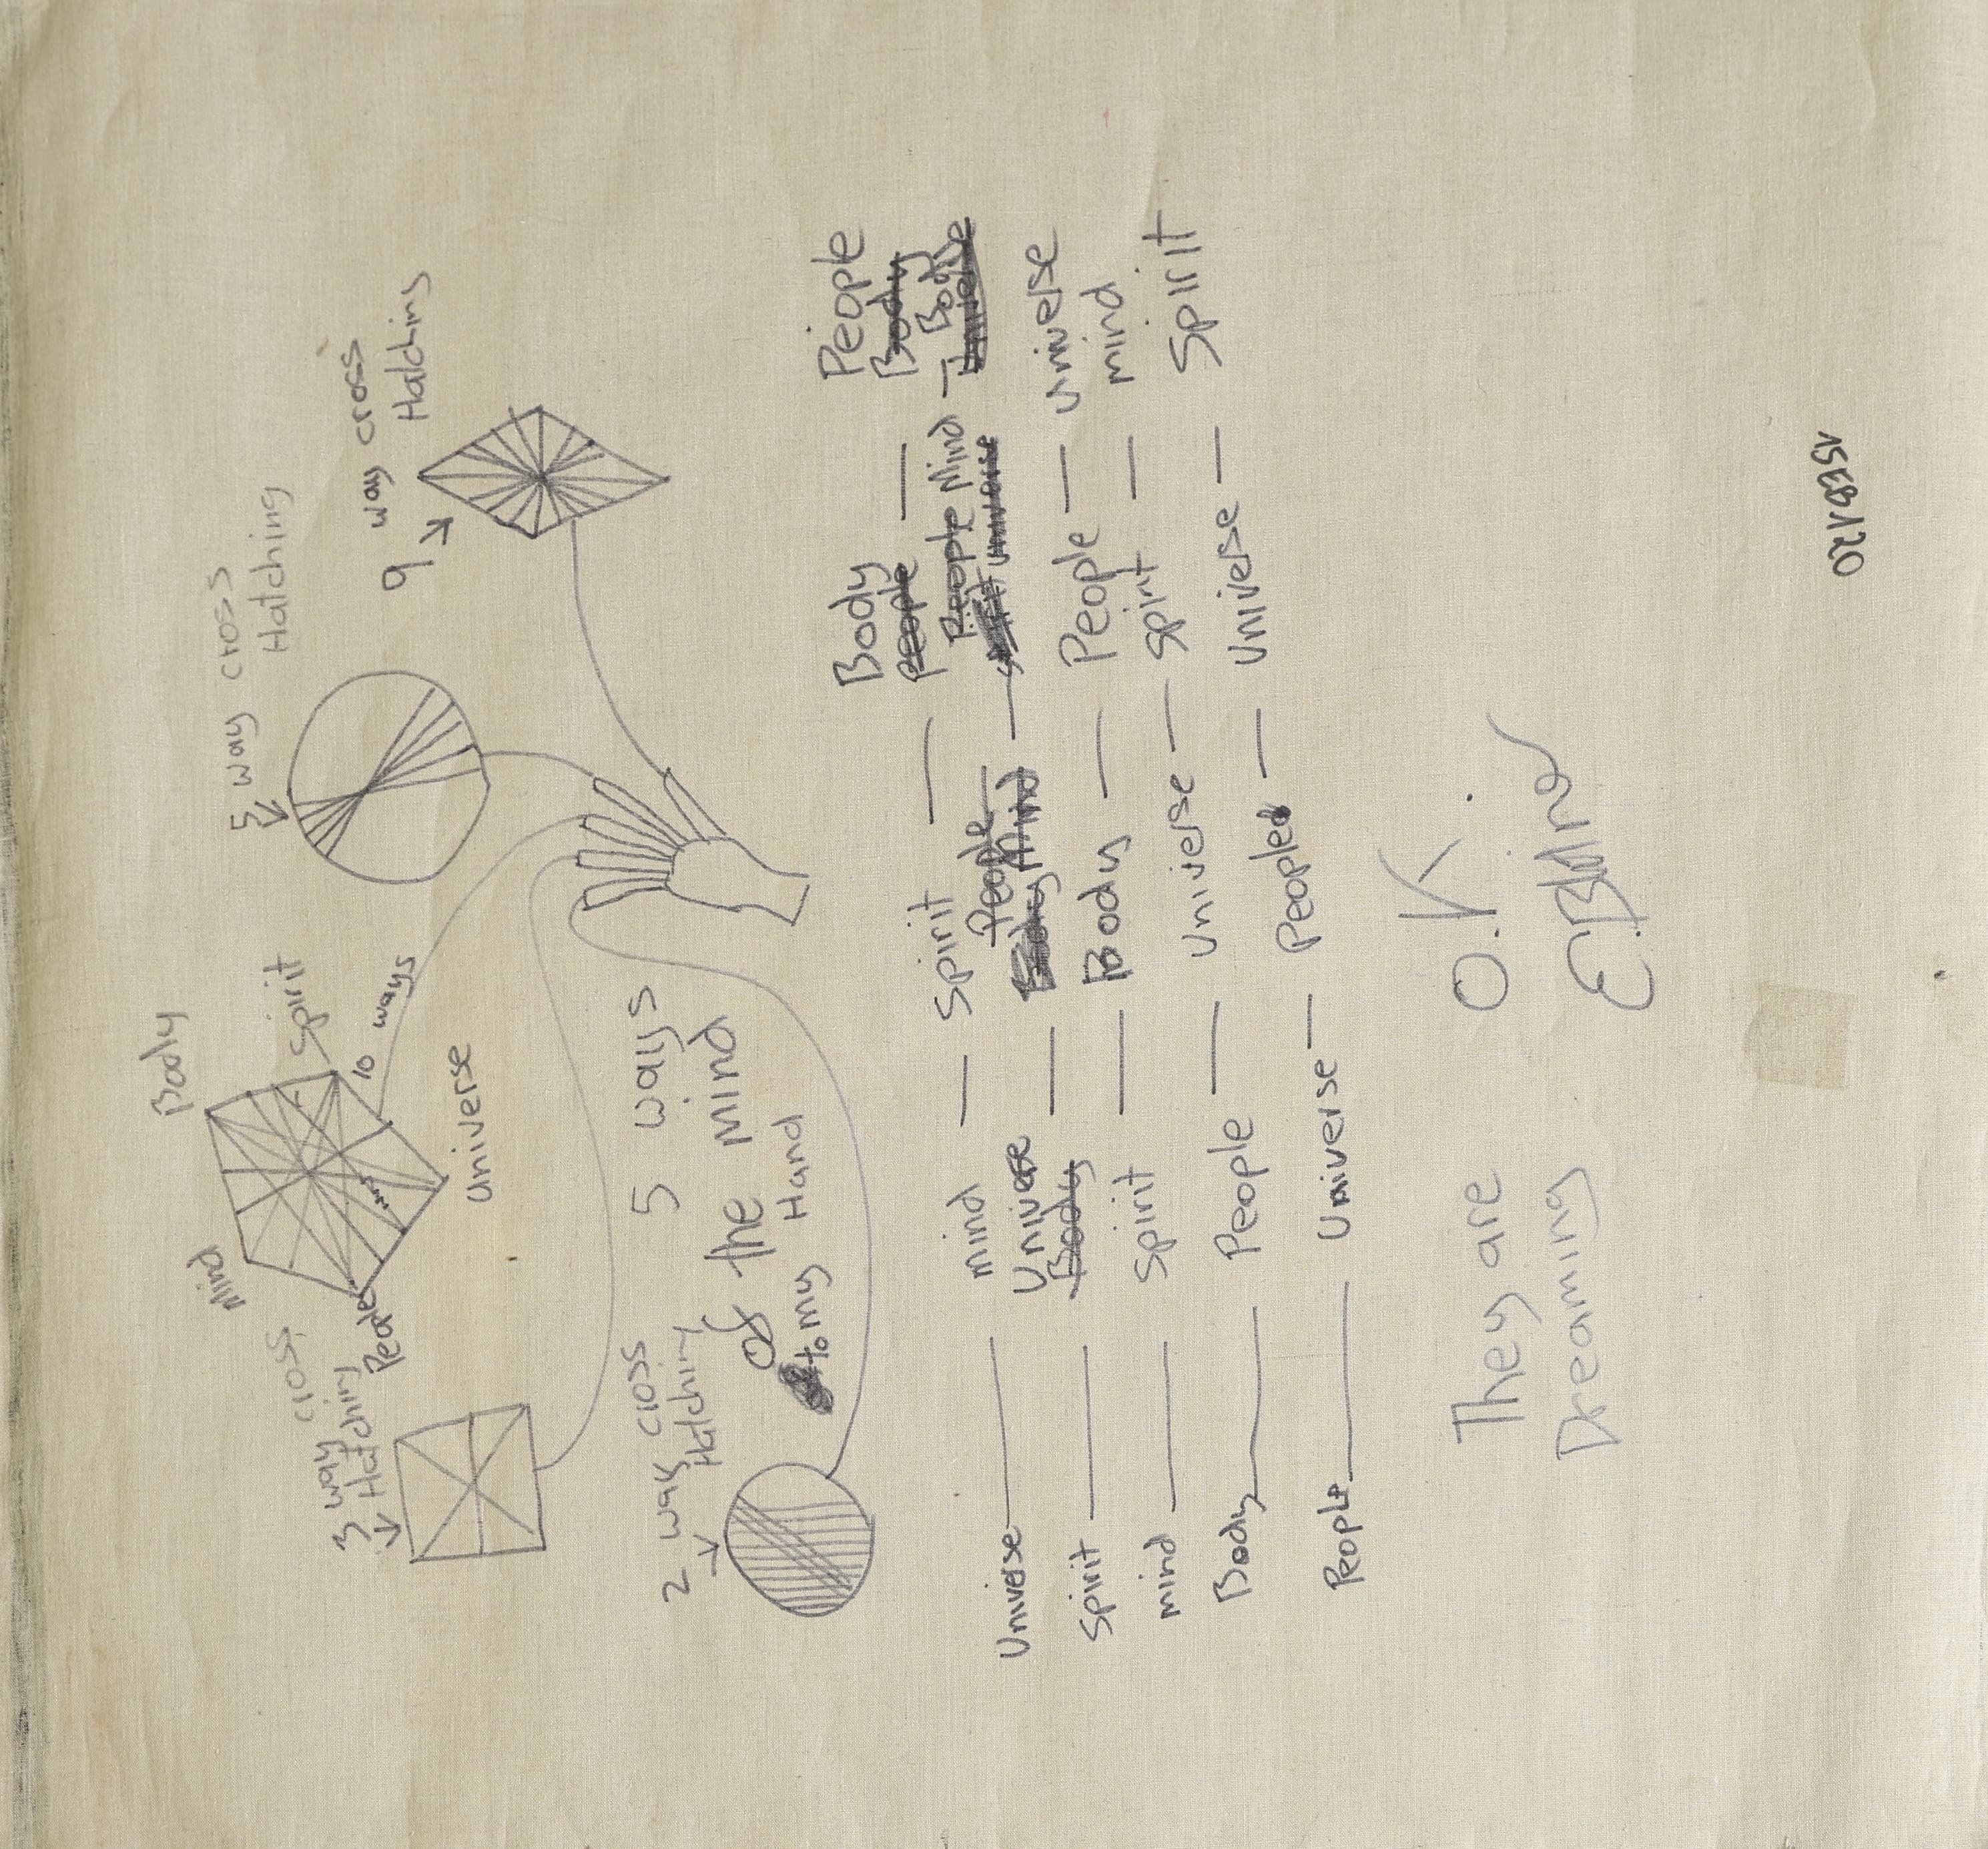 Body
Mind
Spirit
People
10 ways
Universe
5 way cross
Hatching
9 way cross
Hatching
3 way cross
Hatching
2 way cross
Hatching
5 ways
of the mind
to my Hand
Universe — mind — Spirit — Body — People
People Body
Spirit — Universe — People — People Mind — Body
Body Body Mind Universe Universe
mind — Spirit — Body — People — universe
Body — People — Universe — spirit — mind
People — Universe — People — Universe — Spirit
They are O.K.
Dreaming